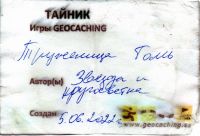 ТАЙНИК
Игры GEOCACHING
Труженица Голь
Автор(ы) Звезда и
кругосветка
Создан 5.06.2022
www.geocaching.